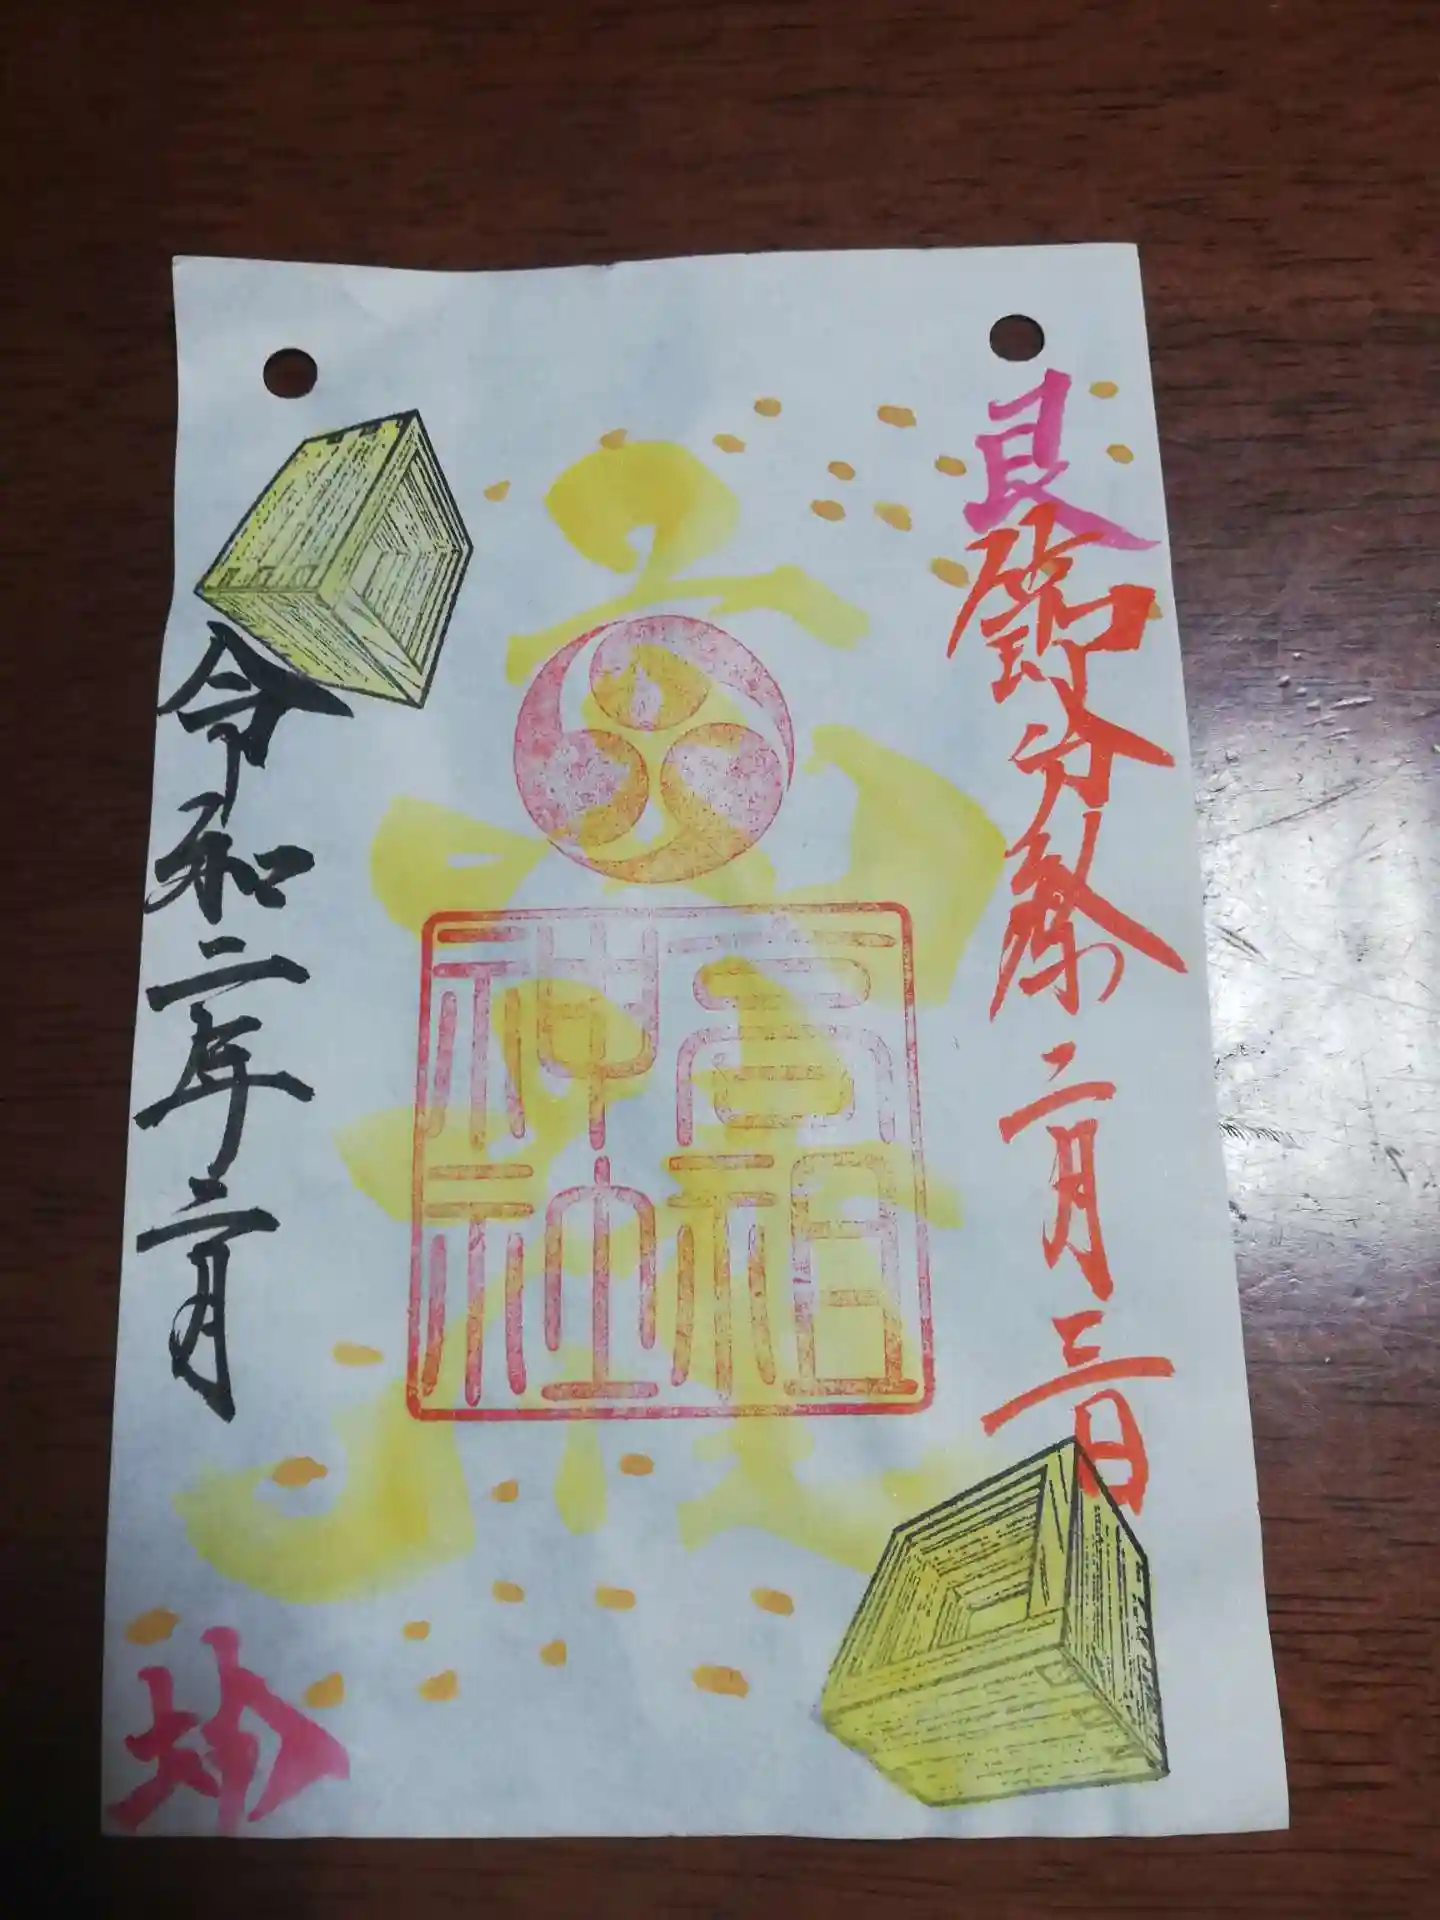 艮
節分祭 二月三日
高祖
神社
令和二年二月
坤